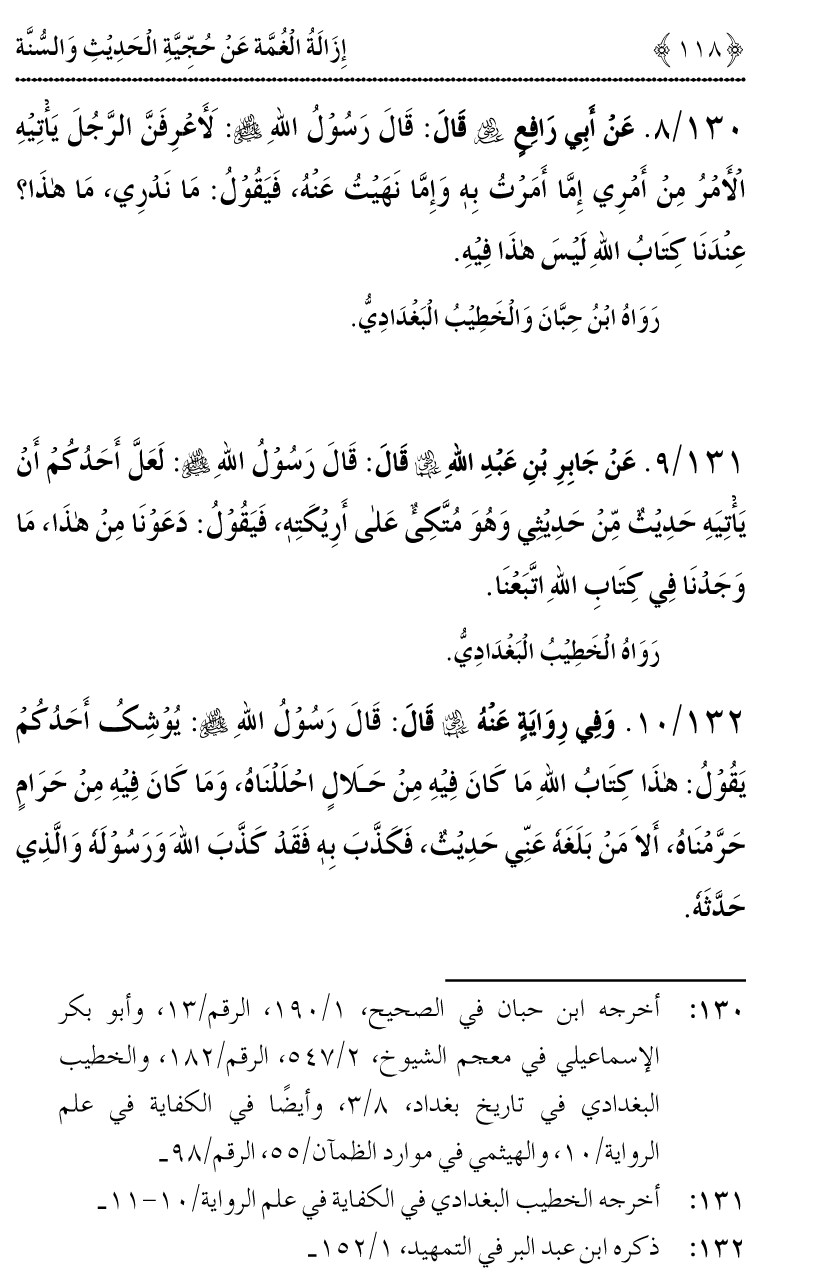 ﴿١١٨﴾ إِزَالَةُ الْغُمَّة عَنْ حُجِّيَّةِ الْحَدِيْثِ وَالسُّنَّة
٨/١٣٠. عَنْ أَبِي رَافِعٍ ﵁ قَالَ: قَالَ رَسُوْلُ اللهِ ﷺ: لَأَعْرِفَنَّ الرَّجُلَ يَأْتِيْهِ
الْأَمْرُ مِنْ أَمْرِي إِمَّا أَمَرْتُ بِهٖ وَإِمَّا نَهَيْتُ عَنْهُ، فَيَقُوْلُ: مَا نَدْرِي، مَا هٰذَا؟
عِنْدَنَا كِتَابُ اللهِ لَيْسَ هٰذَا فِيْهِ.
رَوَاهُ ابْنُ حِبَّانَ وَالْخَطِيْبُ الْبَغْدَادِيُّ.
٩/١٣١. عَنْ جَابِرِ بْنِ عَبْدِ اللهِ ﵄ قَالَ: قَالَ رَسُوْلُ اللهِ ﷺ: لَعَلَّ أَحَدُكُمْ أَنْ
يَأْتِيَهِ حَدِيْثٌ مِّنْ حَدِيْثِي وَهُوَ مُتَّكِئٌ عَلٰى أَرِيْكَتِهٖ، فَيَقُوْلُ: دَعَوْنَا مِنْ هٰذَا، مَا
وَجَدْنَا فِي كِتَابِ اللهِ اتَّبَعْنَا.
رَوَاهُ الْخَطِيْبُ الْبَغْدَادِيُّ.
١٠/١٣٢. وَفِي رِوَايَةٍ عَنْهُ ﵁ قَالَ: قَالَ رَسُوْلُ اللهِ ﷺ: يُوْشِكُ أَحَدُكُمْ
يَقُوْلُ: هٰذَا كِتَابُ اللهِ مَا كَانَ فِيْهِ مِنْ حَلَالٍ احْلَلْنَاهُ، وَمَا كَانَ فِيْهِ مِنْ حَرَامٍ
حَرَّمْنَاهُ، أَلاَ مَنْ بَلَغَهٗ عَنِّي حَدِيْثٌ، فَكَذَّبَ بِهٖ فَقَدْ كَذَّبَ اللهَ وَرَسُوْلَهٗ وَالَّذِي
حَدَّثَهٗ.
١٣٠: أخرجه ابن حبان في الصحيح، ١/١٩٠، الرقم/١٣، وأبو بكر
الإسماعيلي في معجم الشيوخ، ٢/٥٤٧، الرقم/١٨٢، والخطيب
البغدادي في تاريخ بغداد، ٨/٣، وأيضًا في الكفاية في علم
الرواية/١٠، والهيثمي في موارد الظمآن/٥٥، الرقم/٩٨ـ
١٣١: أخرجه الخطيب البغدادي في الكفاية في علم الرواية/١٠-١١ـ
١٣٢: ذكره ابن عبد البر في التمهيد، ١/١٥٢ـ